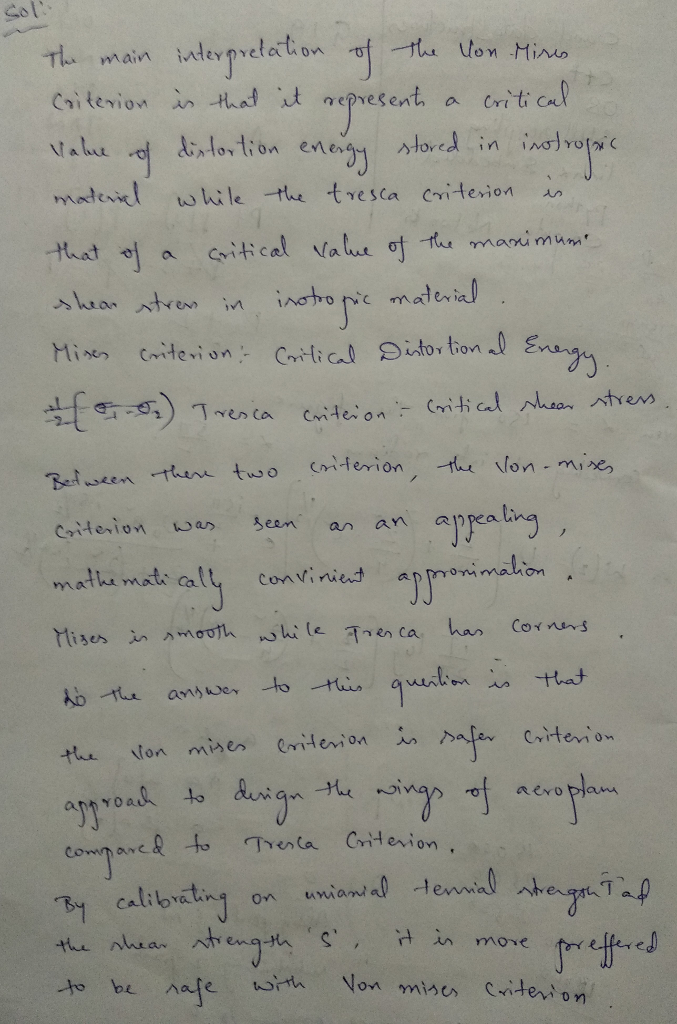 Sol:
The main interpretation of the Von Mises
Criterion is that it represents a critical
value of distortion energy stored in isotropic
material while the tresca criterion is
that of a critical value of the maximum
shear stress in isotropic material.
Mises criterion:- Critical Distortional Energy.
Tresca criteion:- Critical shear stress.
Between these two criterion, the Von-mises
Criterion was seen as an appealing,
mathematically convinient approximation.
Mises is smooth while Tresca has corners.
so the answer to this question is that
the Von mises criterion is safer criterion
approach to design the wings of aeroplane
compared to Tresca Criterion.
By calibrating on uniaxial tensial strength T ad
the shear strength 'S', it is more preffered
to be safe with Von mises Criterion